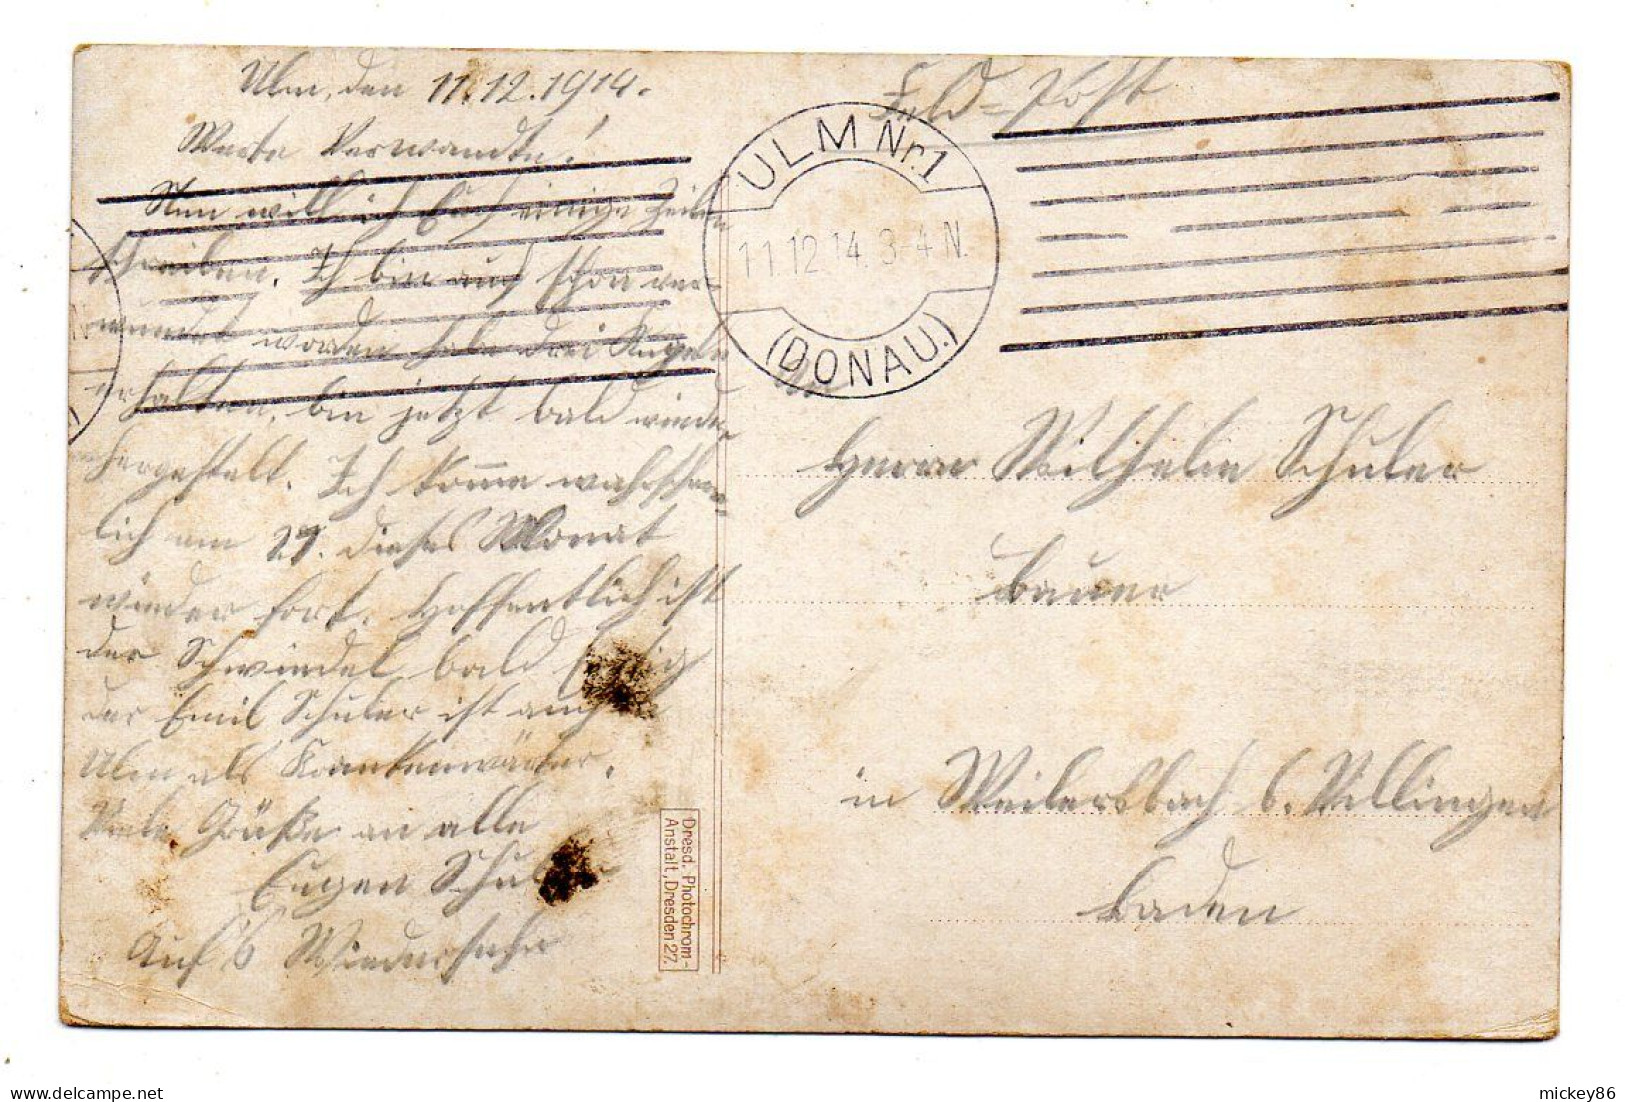 Ulm, den 11.12.1914.
Werte Verwandte!
Nun will ich Euch einige Zeilen
schreiben. Ich bin auch schon ver-
wundet worden habe drei Kugeln
erhalten, bin jetzt bald wieder
hergestellt. Ich komme wahrschein-
lich am 27. dieses Monat
wieder fort. Hoffentlich ist
der Schwindel bald fertig
der Emil Schuler ist auch in
Ulm als Krankenwärter.
Viele Grüße an alle
Eugen Schuler
Auf's Wiedersehn
Feld-Post
ULM Nr.1
11.12.14. 3-4 N.
(DONAU.)
An
Herrn Wilhelm Schuler
Bauer
in Weilersbach b. Villingen
Baden
Dresd. Photochrom-
Anstalt, Dresden 27.
mickey86